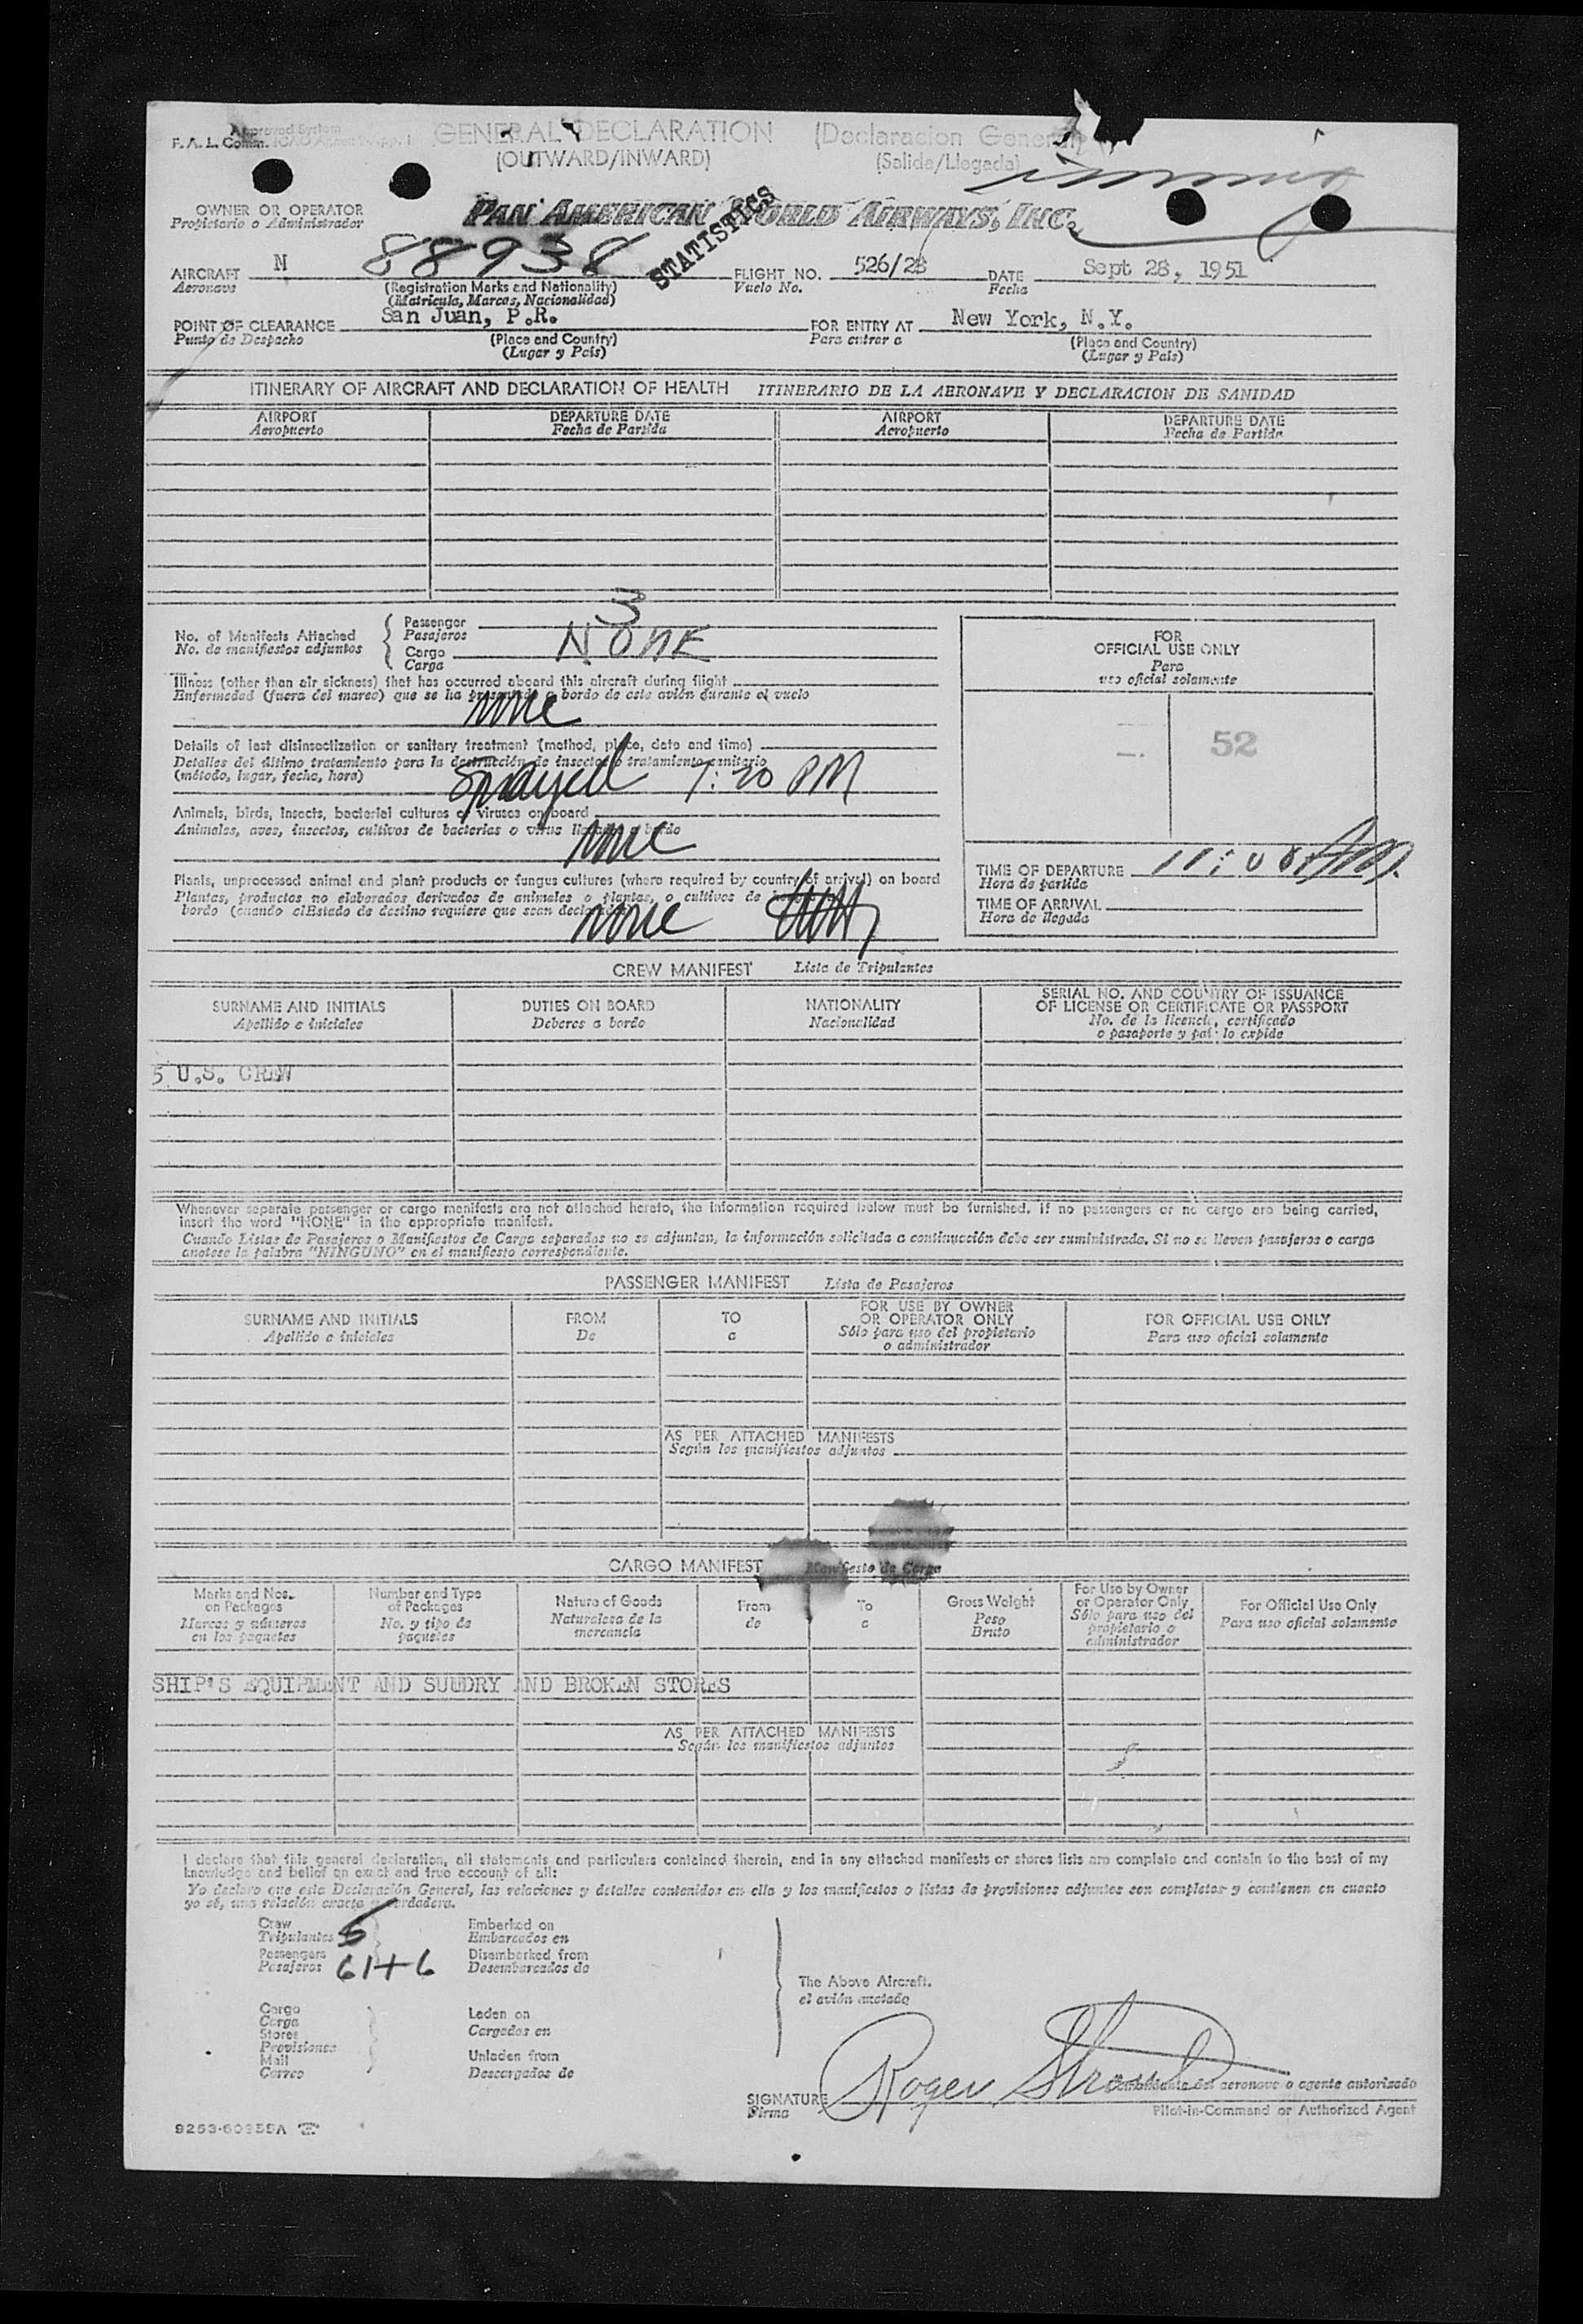 Approved System
F. A. L. Comm.
GENERAL DECLARATION (Declaracion General)
(OUTWARD/INWARD) (Salida/Llegada)
OWNER OR OPERATOR PAN AMERICAN WORLD AIRWAYS, INC.
Propietario o Administrador
STATISTICS
AIRCRAFT N 88938 FLIGHT NO. 526/28 DATE Sept 28, 1951
Aeronave (Registration Marks and Nationality) Vuelo No. Fecha
(Matricula, Marcas, Nacionalidad)
POINT OF CLEARANCE San Juan, P.R. FOR ENTRY AT New York, N.Y.
Punto de Despacho (Place and Country) Para entrar a (Place and Country)
(Lugar y País) (Lugar y País)
ITINERARY OF AIRCRAFT AND DECLARATION OF HEALTH ITINERARIO DE LA AERONAVE Y DECLARACION DE SANIDAD
AIRPORT DEPARTURE DATE AIRPORT DEPARTURE DATE
Aeropuerto Fecha de Partida Aeropuerto Fecha de Partida
No. of Manifests Attached Passenger 3
No. de manifiestos adjuntos Pasajeros
Cargo NONE
Carga
FOR
OFFICIAL USE ONLY
Para
uso oficial solamente
52
Illness (other than air sickness) that has occurred aboard this aircraft during flight
Enfermedad (fuera del mareo) que se ha presentado a bordo de este avión durante el vuelo
none
Details of last disinsectization or sanitary treatment (method, place, date and time)
Detalles del último tratamiento para la destrucción de insectos o tratamiento sanitario
(método, lugar, fecha, hora) Sprayed 7:20 PM
Animals, birds, insects, bacterial cultures or viruses on board
Animales, aves, insectos, cultivos de bacterias o virus llevados a bordo
none
Plants, unprocessed animal and plant products or fungus cultures (where required by country of arrival) on board
Plantas, productos no elaborados derivados de animales o plantas, o cultivos de
bordo (cuando el Estado de destino requiere que sean declarados)
none
TIME OF DEPARTURE 11:00
Hora de partida
TIME OF ARRIVAL
Hora de llegada
CREW MANIFEST Lista de Tripulantes
SURNAME AND INITIALS DUTIES ON BOARD NATIONALITY SERIAL NO. AND COUNTRY OF ISSUANCE
OF LICENSE OR CERTIFICATE OR PASSPORT
Apellido e iniciales Deberes a bordo Nacionalidad No. de la licencia, certificado
o pasaporte y país lo expide
5 U.S. CREW
Whenever separate passenger or cargo manifests are not attached hereto, the information required below must be furnished. If no passengers or no cargo are being carried,
insert the word "NONE" in the appropriate manifest.
Cuando Listas de Pasajeros o Manifiestos de Carga separados no se adjuntan, la información solicitada a continuación debe ser suministrada. Si no se lleven pasajeros o carga
anotese la palabra "NINGUNO" en el manifiesto correspondiente.
PASSENGER MANIFEST Lista de Pasajeros
SURNAME AND INITIALS FROM TO FOR USE BY OWNER FOR OFFICIAL USE ONLY
OR OPERATOR ONLY
Apellido e iniciales De a Sólo para uso del propietario Para uso oficial solamente
o administrador
AS PER ATTACHED MANIFESTS
Según los manifiestos adjuntos
CARGO MANIFEST Manifiesto de Carga
Marks and Nos. Number and Type Nature of Goods From To Gross Weight For Use by Owner For Official Use Only
on Packages of Packages Naturaleza de la de a Peso or Operator Only Para uso oficial solamente
Marcas y números No. y tipo de mercancía Bruto Sólo para uso del
en los paquetes paquetes propietario o
administrador
SHIP'S EQUIPMENT AND SUUDRY AND BROKEN STORES
AS PER ATTACHED MANIFESTS
Según los manifiestos adjuntos
I declare that this general declaration, all statements and particulars contained therein, and in any attached manifests or stores lists are complete and contain to the best of my
knowledge and belief an exact and true account of all:
Yo declaro que esta Declaración General, las relaciones y detalles contenidos en ella y los manifiestos o listas de provisiones adjuntos son completos y contienen en cuanto
yo sé, una relación exacta y verdadera.
Crew 5 Embarked on
Tripulantes Embarcados en
Passengers 61+6 Disembarked from
Pasajeros Desembarcados de
The Above Aircraft.
el avión anotado
Cargo Laden on
Carga Cargados en
Stores
Provisiones
Mail Unladen from
Correo Descargados de
SIGNATURE Roger Stroud
Firma
Comandante del aeronave o agente autorizado
Pilot-in-Command or Authorized Agent